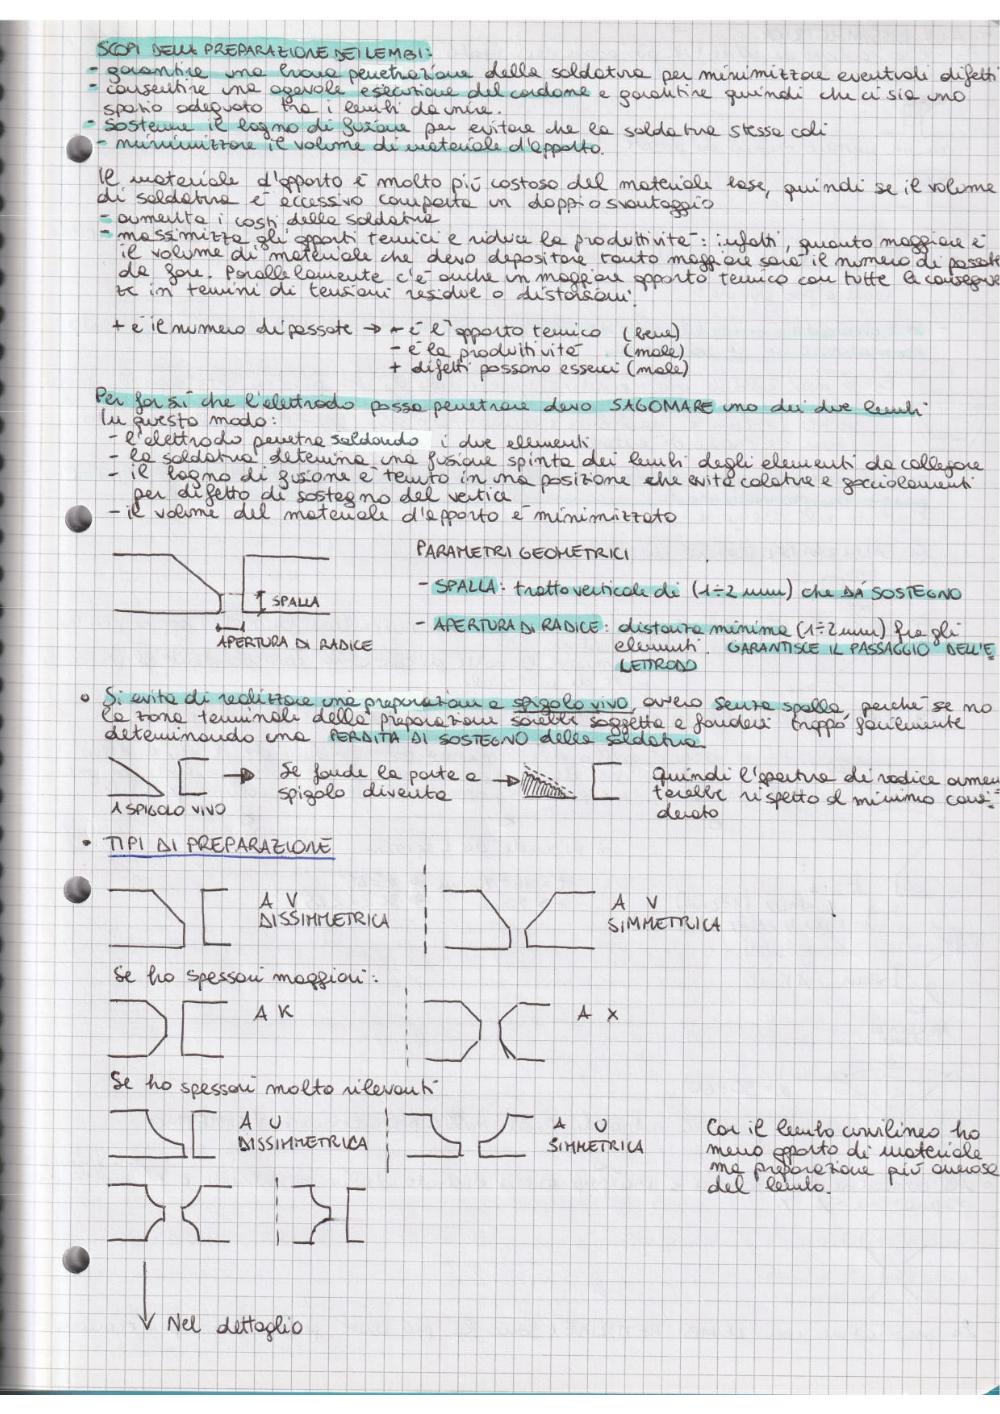 SCOPI DELLA PREPARAZIONE DEI LEMBI:
- garantire una buona penetrazione della saldatura per minimizzare eventuali difetti
- consentire una agevole esecuzione del cordone e garantire quindi che ci sia uno
spazio adeguato tra i lembi da unire.
- sostenere il bagno di fusione per evitare che la saldatura stessa coli
- minimizzare il volume di materiale d'apporto.
Il materiale d'apporto è molto più costoso del materiale base, quindi se il volume
di saldatura è eccessivo comporta un doppio svantaggio
- aumenta i costi della saldatura
- massimizza gli apporti termici e riduce la produttività: infatti, quanto maggiore è
il volume di materiale che devo depositare tanto maggiore sarà il numero di passate
da fare. Parallelamente c'è anche un maggiore apporto termico con tutte le consegue
ze in termini di tensioni residue o distorsioni.
+ è il numero di passate → - è l'apporto termico (bene)
- è la produttività (male)
+ difetti possono esserci (male)
Per far sì che l'elettrodo possa penetrare devo SAGOMARE uno dei due lembi
In questo modo:
- l'elettrodo penetra saldando i due elementi
- la saldatura determina una fusione spinta dei lembi degli elementi da collegare
- il bagno di fusione è tenuto in una posizione che evita colature e gocciolamenti
per difetto di sostegno del vertice
- il volume del materiale d'apporto è minimizzato
PARAMETRI GEOMETRICI
- SPALLA: tratto verticale di (1÷2 mm) che DÀ SOSTEGNO
SPALLA
- APERTURA DI RADICE: distanza minima (1÷2 mm) fra gli
elementi. GARANTISCE IL PASSAGGIO DELL'E
LETTRODO
APERTURA DI RADICE
• Si evita di realizzare una preparazione a spigolo vivo, ovvero senza spalla, perché se no
la zona terminale della preparazione sarebbe soggetta a fondersi troppo facilmente
determinando una PERDITA DI SOSTEGNO della saldatura
A SPIGOLO VIVO
→ Se fonde la parte a
spigolo diventa →
Quindi l'apertura di radice aumen
terebbe rispetto al minimo consi-
derato
• TIPI DI PREPARAZIONE
A V
DISSIMMETRICA
A V
SIMMETRICA
Se ho spessori maggiori:
A K
A X
Se ho spessori molto rilevanti
A U
DISSIMMETRICA
A U
SIMMETRICA
Con il lembo curvilineo ho
meno apporto di materiale
ma preparazione più onerosa
del lembo.
Nel dettaglio